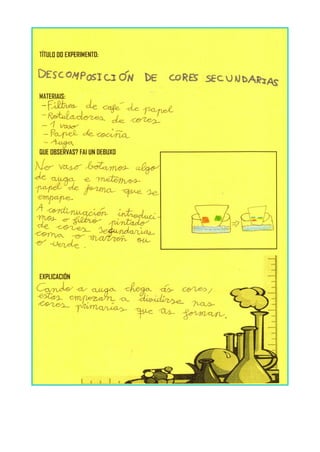 TÍTULO DO EXPERIMENTO:
DESCOMPOSICIÓN DE CORES SECUNDARIAS
MATERIAIS:
-Filtros de café de papel
-Rotuladores de cores
- 1 vaso
- Papel de cociña
- Auga
QUE OBSERVAS? FAI UN DEBUXO
No vaso botamos algo
de auga e metémos
papel de forma que se
empape.
A continuación introduci-
mos o filtro pintado
de cores secundarias
coma o marrón ou
o verde.
EXPLICACIÓN
Cando a auga chega ás cores,
estas empezam a dividirse nas
cores primarias que as forman.